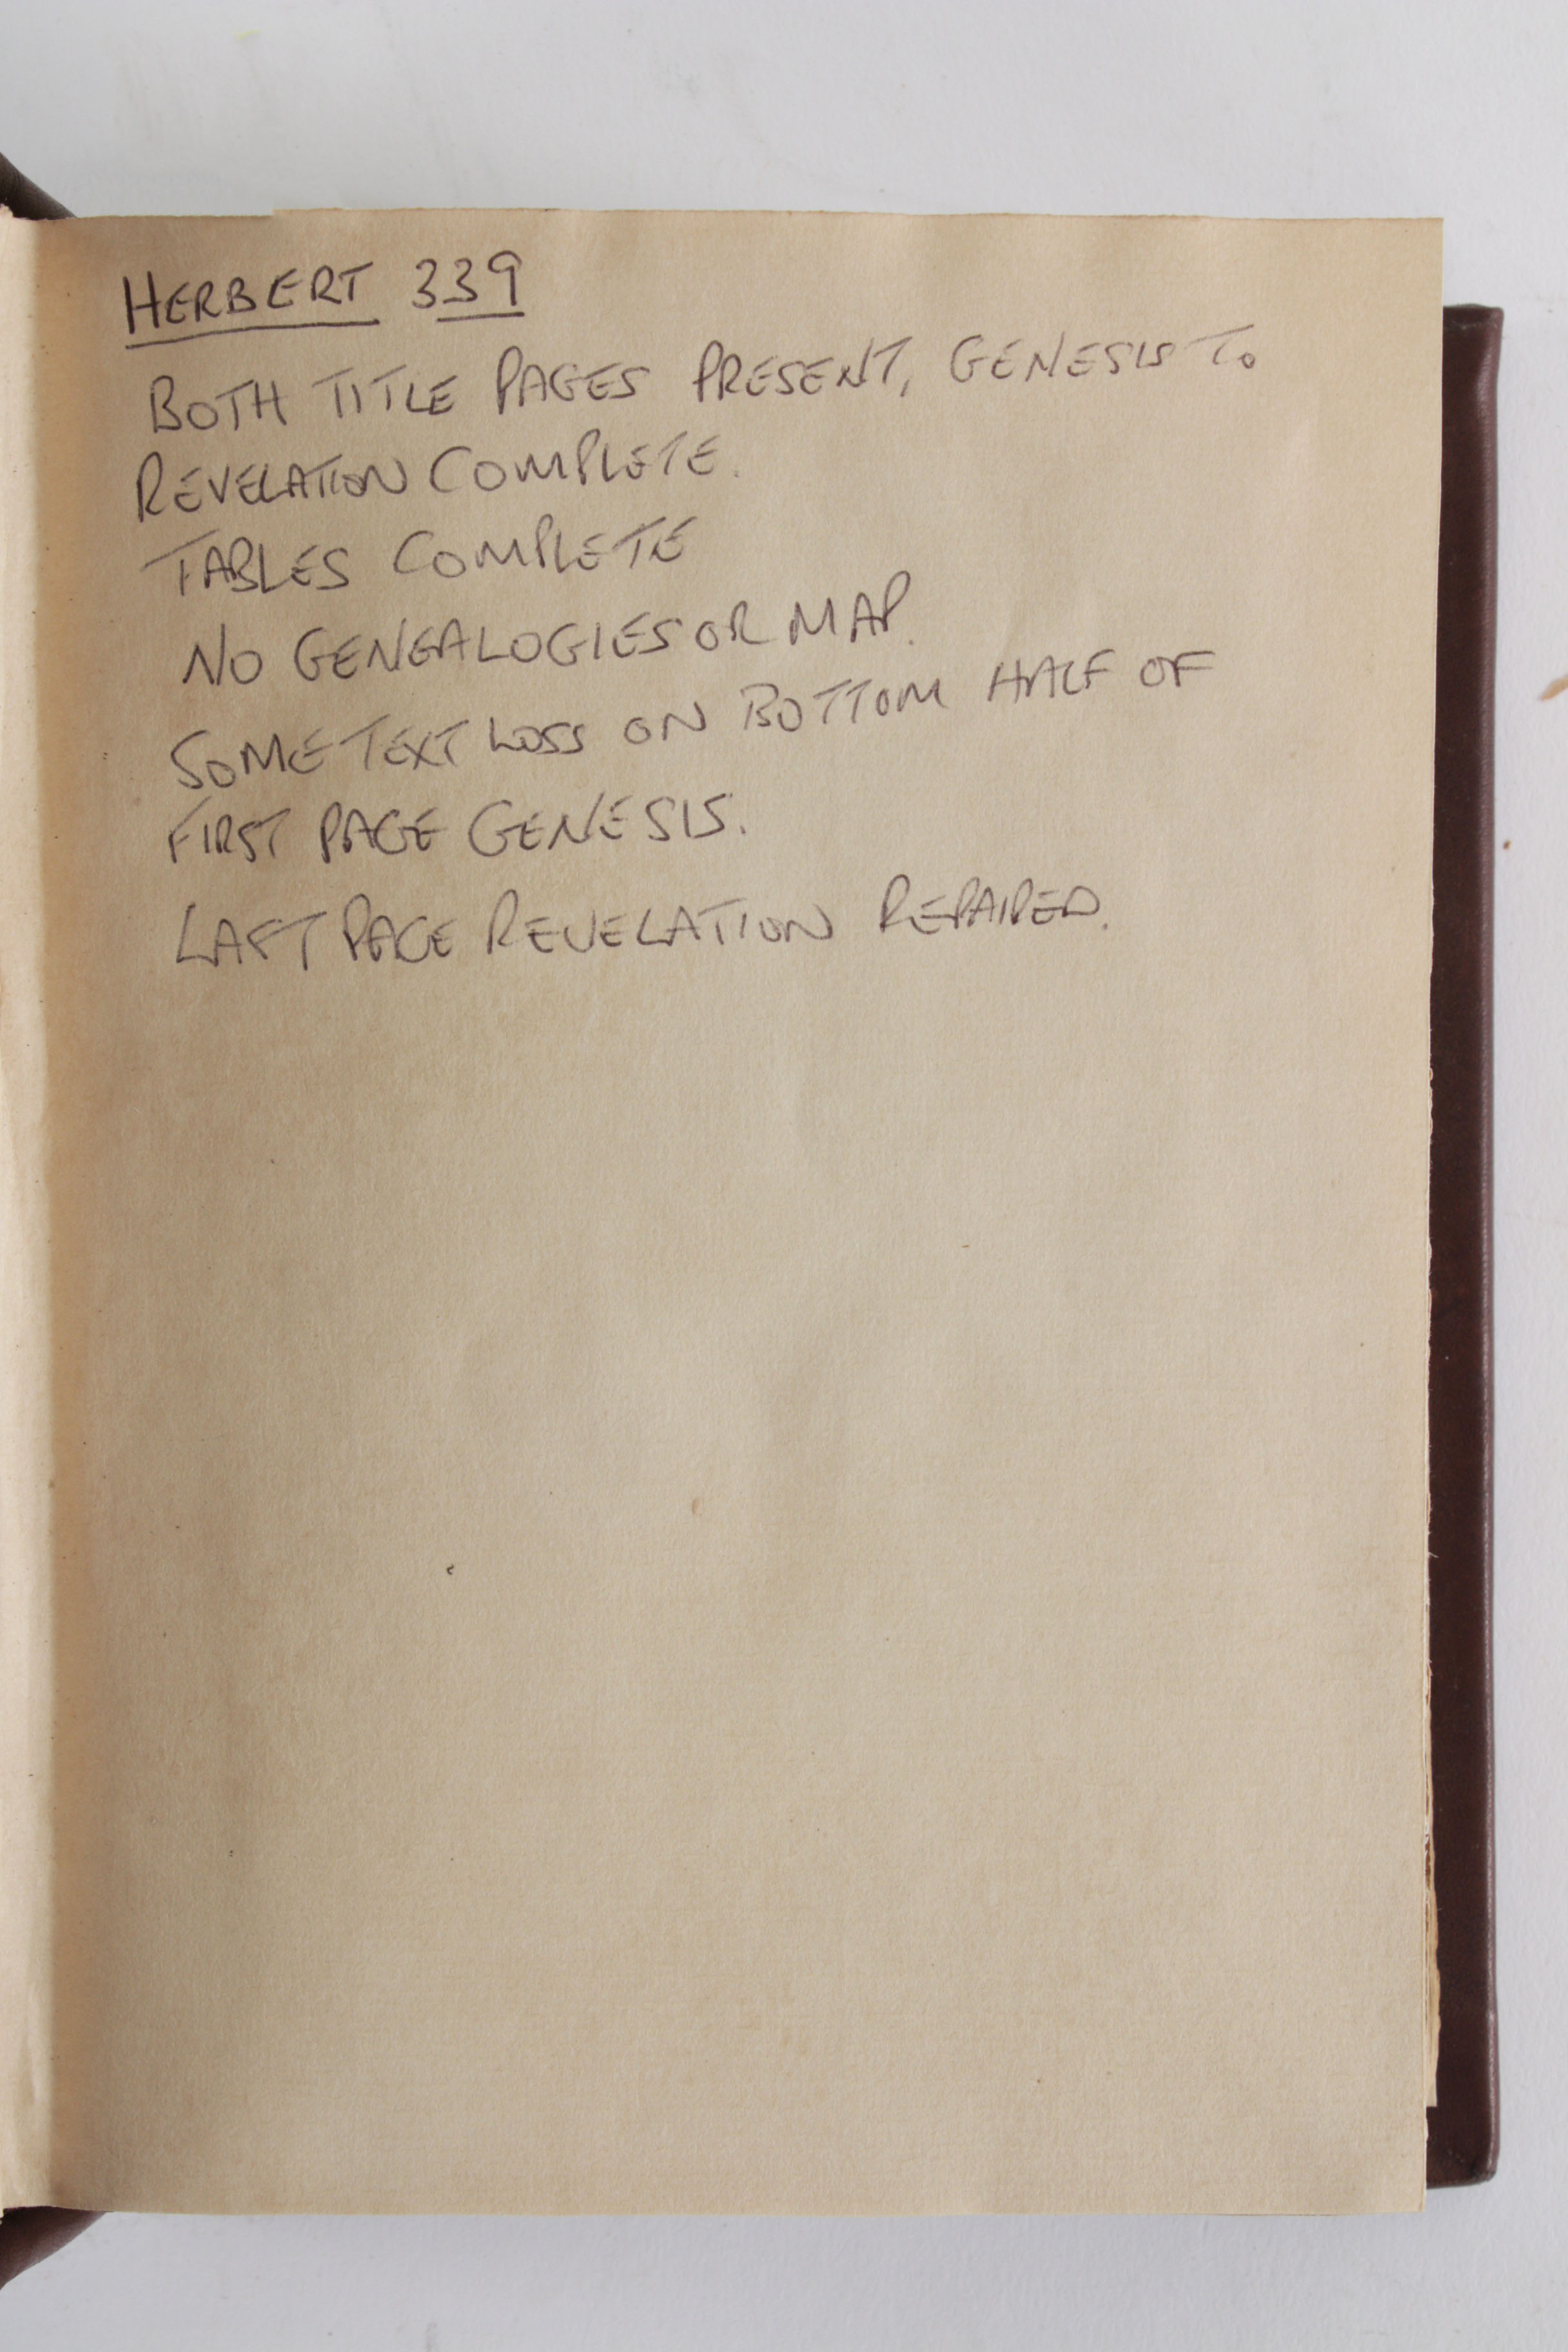 HERBERT 339
BOTH TITLE PAGES PRESENT, GENESIS TO
REVELATION COMPLETE.
TABLES COMPLETE
NO GENEALOGIES OR MAP.
SOME TEXT LOSS ON BOTTOM HALF OF
FIRST PAGE GENESIS.
LAST PAGE REVELATION REPAIRED.